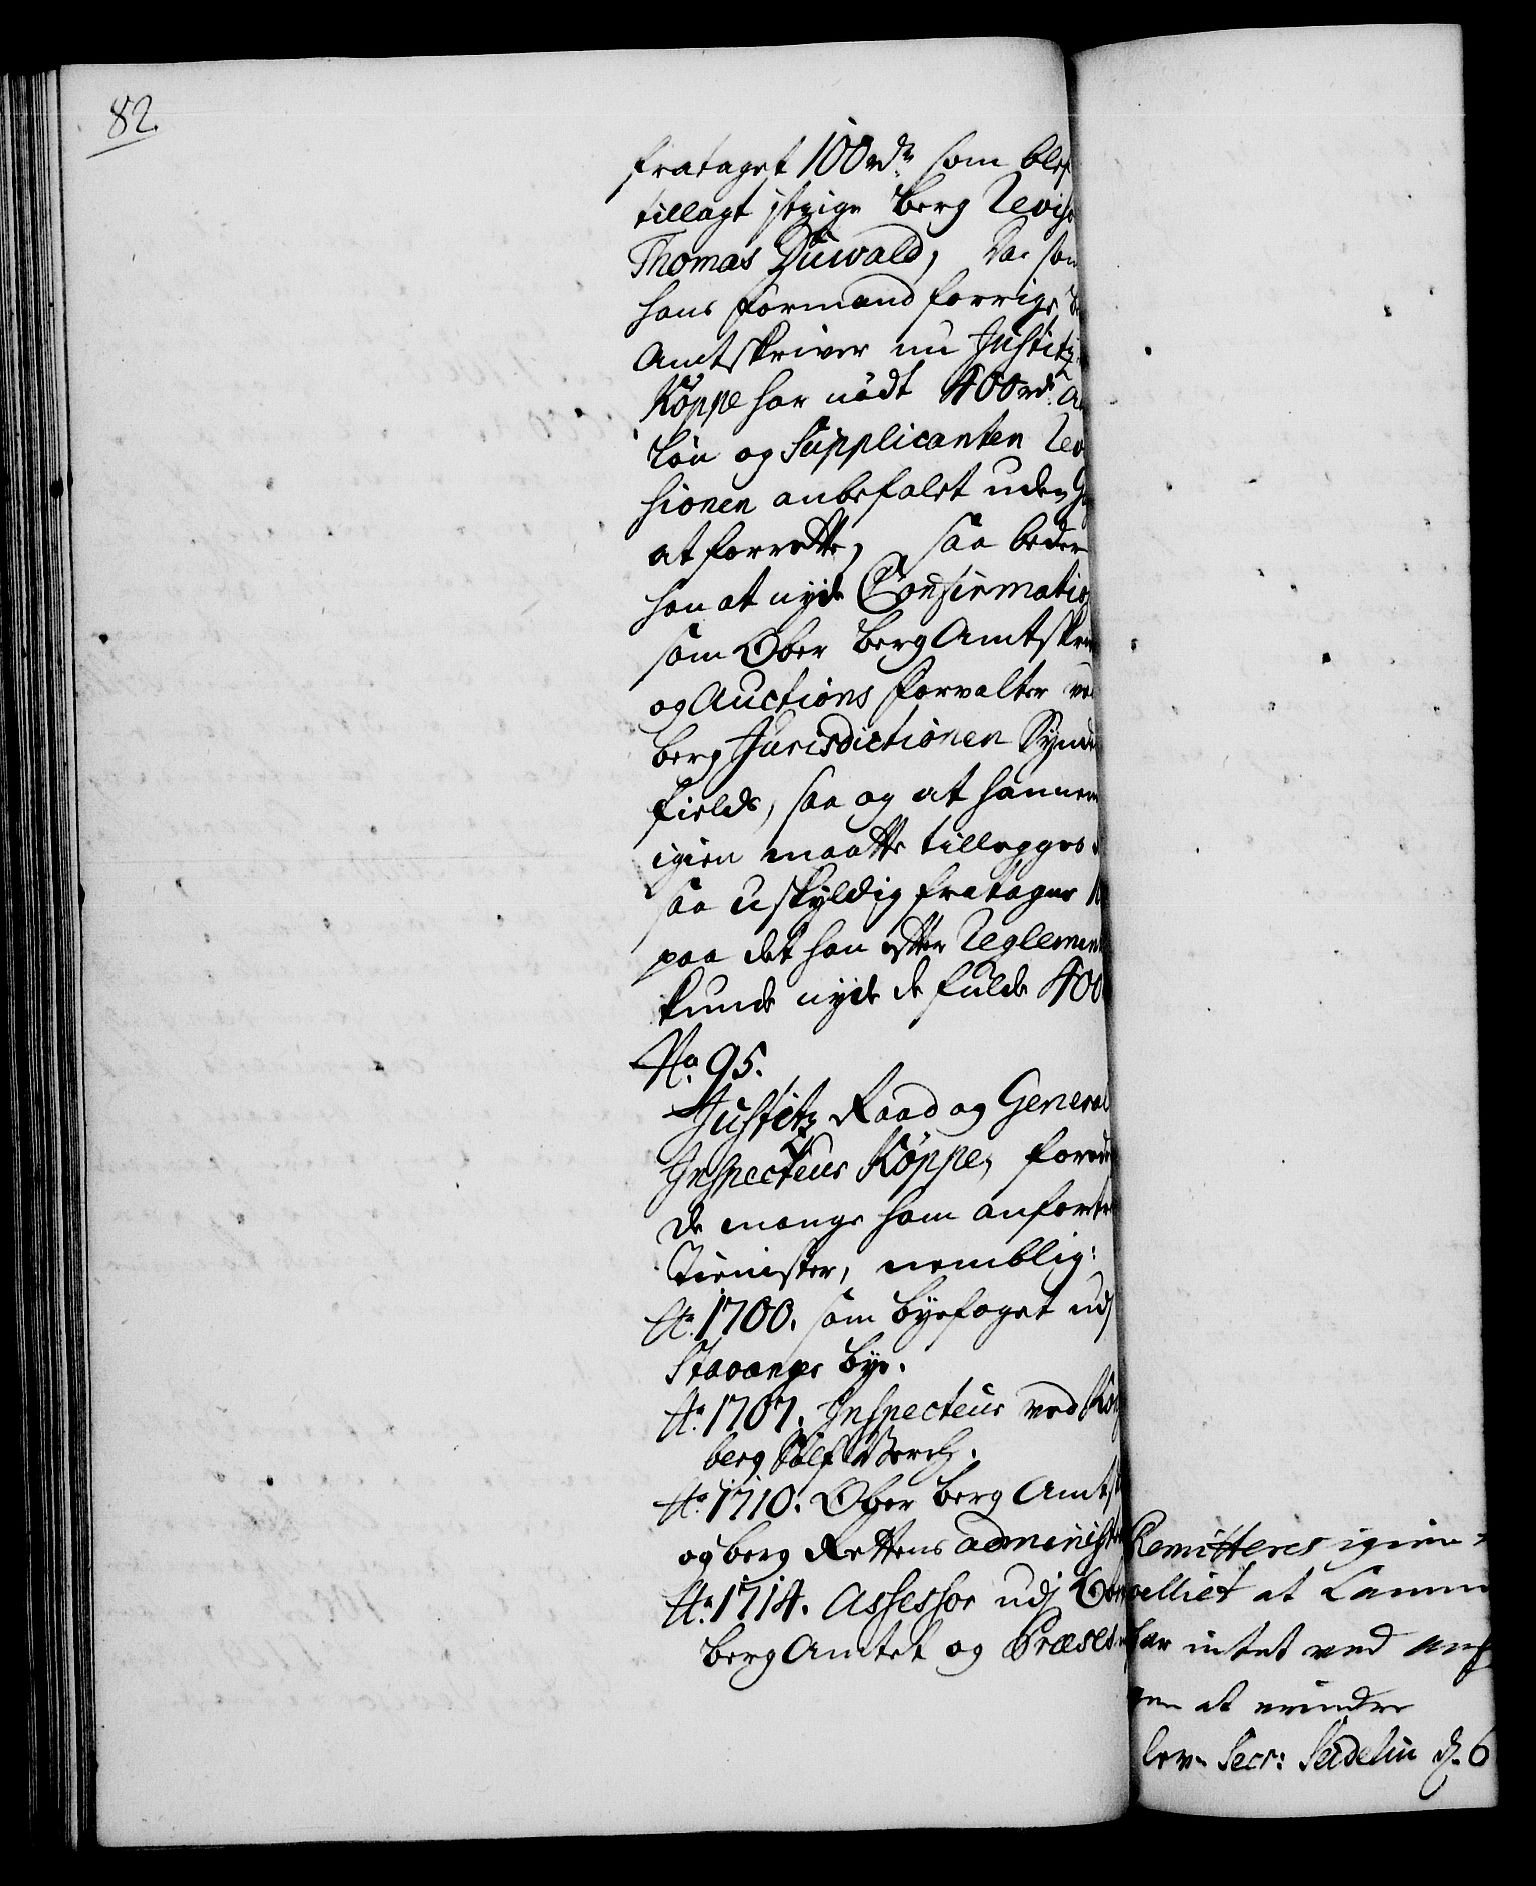 82.
frataget 100 rdr som blef
tillagt itzige Berg Reviso
Thomas Duwald, Da som
hans formand forrige
Amtskriver nu Justitz
Köppe har nödt 400 rd.
Lön og Supplicanten Rev
sionen anbefalet uden
at forrette, saa beder
han at nyde Confirmatio
som Ober Berg Amtskr
og Auctions forvalter ve
berg Jurisdictionen Synden
fields, saa og at hannem
igien maatte tillegges
saa uskyldig fratagne
paa det han efter Reglement
kunde nyde de fulde 400
No. 95.
Justitz Raad og General
Inspecteur Köppe, fore
de mange ham anfortro
Tienister, nemblig:
Ao. 1700. som byefoget udj
Stavanger bye.
Ao. 1707. Inspecteur ved Kong
berg Sölf Werck.
Ao. 1710. Ober Berg Amts
og berg Rettens administ
Ao. 1714. Assessor udj Ober
berg Amtet og Præses
Remitteres igien
velliet at Camm
har intet ved
gen at erindre
lev. Secr: Seidelin d. 6